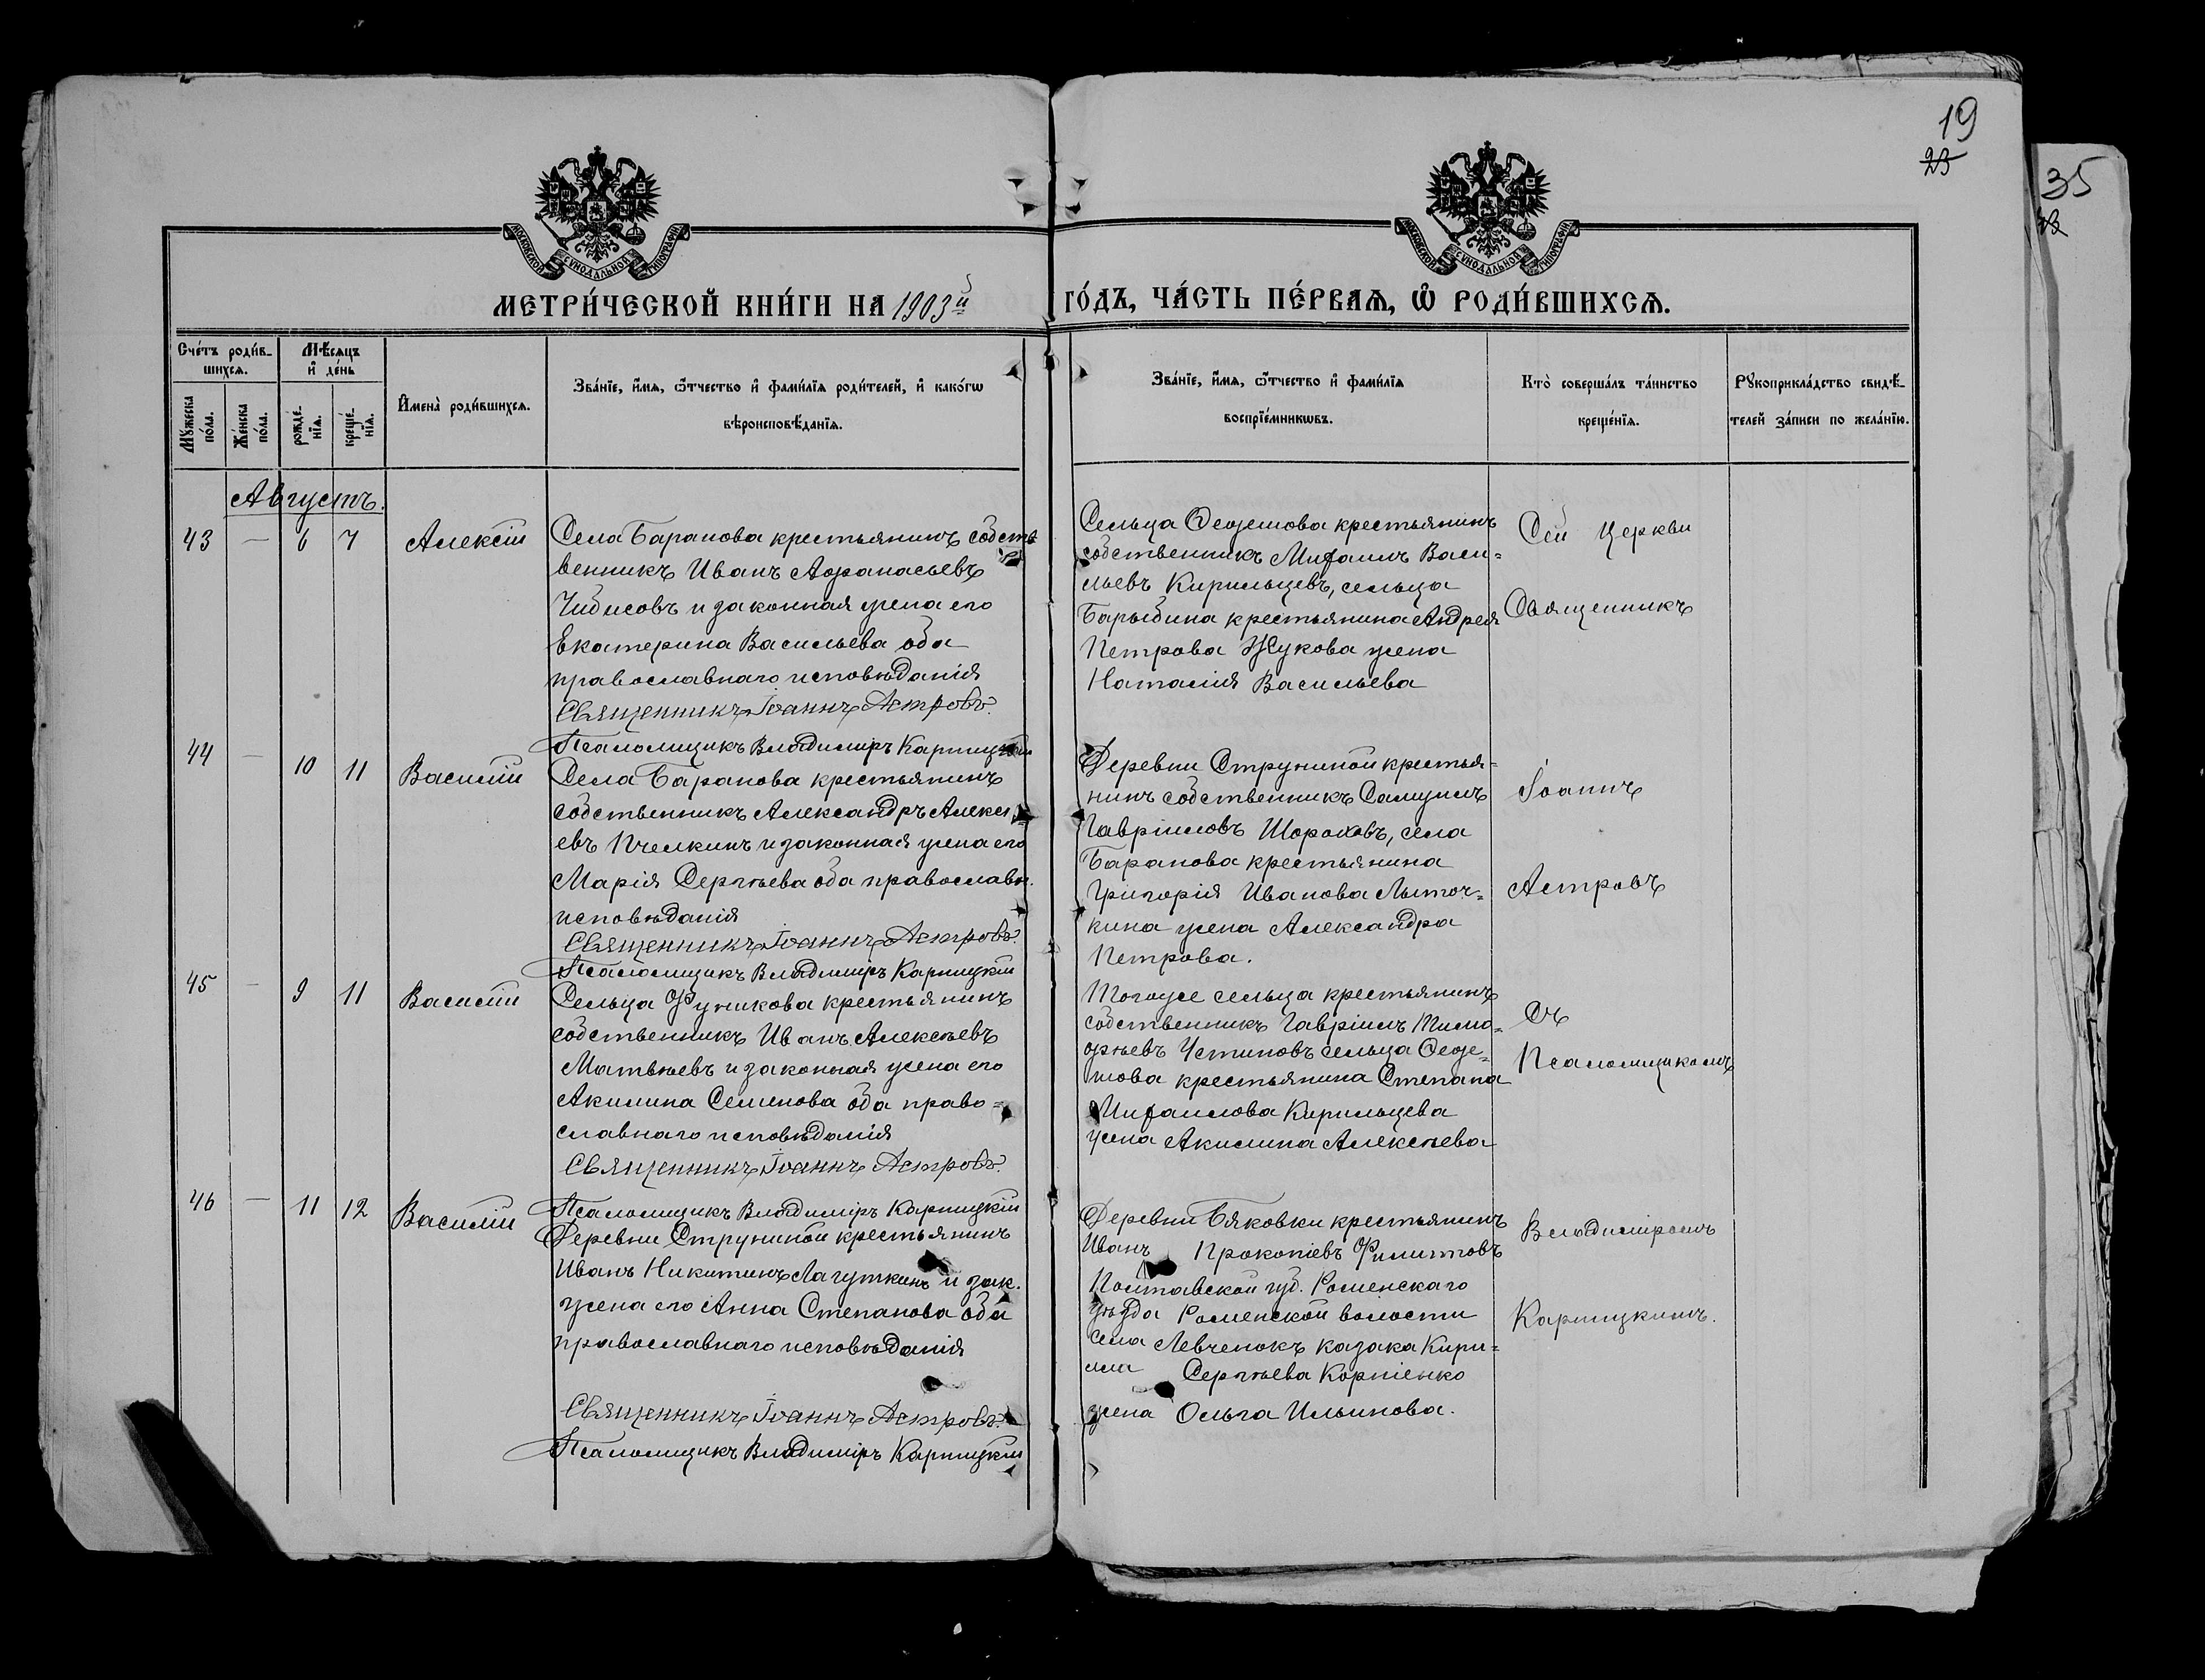 19
23
35
МОСКОВСКОЙ СѴНОДАЛЬНОЙ ТИПОГРАФІИ
МОСКОВСКОЙ СѴНОДАЛЬНОЙ ТИПОГРАФІИ
МЕТРИ́ЧЕСКОЙ КНИ́ГИ НА 1903й ГО́ДЪ, ЧА́СТЬ ПЕ́РВАѦ, Ѽ РОДИ́ВШИХСѦ.
Сче́тъ роди́в-
шихсѧ.
Мѣ́сѧцъ
и҆ де́нь
Мꙋ́жеска по́ла.
Же́нска по́ла.
рожде́-нїѧ.
креще́-нїѧ.
И҆мена̀ роди́вшихсѧ.
Зва́нїе, и҆́мѧ, ѻ҆́тчество и҆ фами́лїѧ роди́телей, и҆ како́гѡ
вѣроисповѣ́данїѧ.
Зва́нїе, и҆́мѧ, ѻ҆́тчество и҆ фами́лїѧ
воспрїе́мникѡвъ.
Кто̀ соверша́лъ та́инство
креще́нїѧ.
Рꙋкоприкла́дство свидѣ́-
телей за́писи по жела́нїю.
Августъ.
43 — 6 7 Алексій
Села Баранова крестьянинъ собст
венникъ Иванъ Афанасьевъ
Чибисовъ и законная жена его
Екатерина Васильева оба
православнаго исповѣданія
Священникъ Іоаннъ Астровъ.
Псаломщикъ Владиміръ Карпицкій
Сельца крестьянинъ
собственникъ Михаилъ Васи=
льевъ Кирильцевъ, сельца
Барыбина крестьянина Андрея
Петрова Жукова жена
Наталія Васильева
Сей церкви
Священникъ
44 — 10 11 Василій
Села Баранова крестьянинъ
собственникъ Александръ Алексѣ
евъ Пчелкинъ и законная жена его
Марія Сергѣева оба православн.
исповѣданія
Священникъ Іоаннъ Астровъ.
Псаломщикъ Владиміръ Карпицкій
Деревни Струниной крестья=
нинъ собственникъ Самуилъ
Гавріиловъ Шороховъ, села
Баранова крестьянина
Григорія Иванова Лыточ=
кина жена Александра
Петрова.
Іоаннъ
Астровъ
45 — 9 11 Василій
Сельца Фуникова крестьянинъ
собственникъ Иванъ Алексѣевъ
Матвѣевъ и законная жена его
Акилина Семенова оба право=
славнаго исповѣданія
Священникъ Іоаннъ Астровъ.
Псаломщикъ Владиміръ Карпицкій
Тогоже сельца крестьянинъ
собственникъ Гавріилъ Тимо=
фѣевъ Устиновъ сельца
крестьянина Степана
Михаилова Кирильцева
жена Акилина Алексѣева
Съ
Псаломщикомъ
46 — 11 12 Василій
Деревни Струниной крестьянинъ
Иванъ Никитинъ Лагуткинъ и зак.
жена его Анна Степанова оба
православнаго исповѣданія
Священникъ Іоаннъ Астровъ.
Псаломщикъ Владиміръ Карпицкій
Деревни Бяковки крестьянинъ
Иванъ Прокопіевъ Филиповъ
Полтавской губ. Роменскаго
уѣзда Роменской волости
села Левченокъ казака Кири=
лла Сергѣева Корніенко
жена Ольга Ильинова.
Владиміромъ
Карпицкимъ.